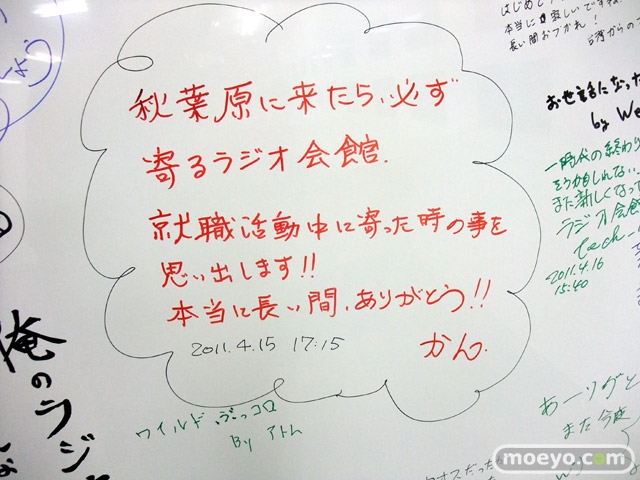 秋葉原に来たら、必ず
寄るラジオ会館.
就職活動中に寄った時の事を
思い出します!!
本当に長い間、ありがとう!!
2011.4.15 17:15
かん.
ワイルド ぶっコロ
By アトム
本当に寂しいですね
長い間おつかれ!
台湾からの
お世話になった
by We
一時代の終わり
また新しくなって
ラジオ会館
tech-
2011.4.16
15:40
俺の
ラジ
あーリグと
また今度
moeyo.com